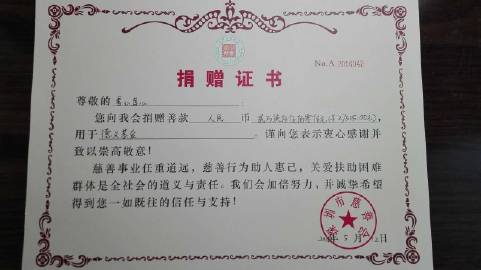 No.A
捐赠证书
尊敬的
您向我会捐赠善款 人民 币
用于 。谨向您表示衷心感谢并
致以崇高敬意！
慈善事业任重道远，慈善行为助人惠己，关爱扶助困难
群体是全社会的道义与责任。我们会加倍努力，并诚挚希望
得到您一如既往的信任与支持！
深圳市慈善会
5 月 12日